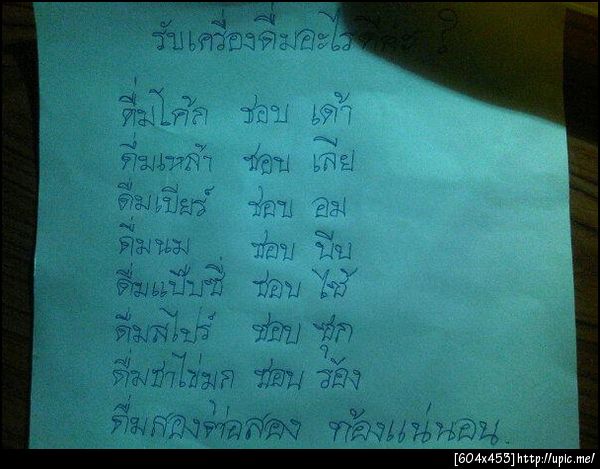 รับเครื่องดื่มอะไรดีคะ ?
ดื่มโค้ก ชอบ เด้า
ดื่มเหล้า ชอบ เลีย
ดื่มเบียร์ ชอบ อม
ดื่มนม ชอบ บีบ
ดื่มแป๊บซี่ ชอบ ไซ้
ดื่มสไปร์ ชอบ ซุก
ดื่มชาไข่มุก ชอบ ร้อง
ดื่มสองต่อสอง ท้องแน่นอน.
[604x453]http://upic.me/